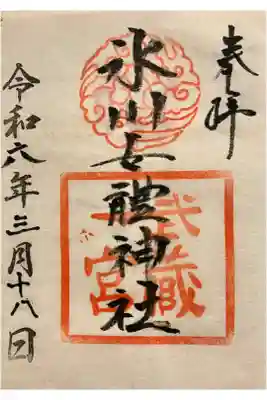 奉拝
氷川女體神社
武蔵一宮
令和六年三月十八日